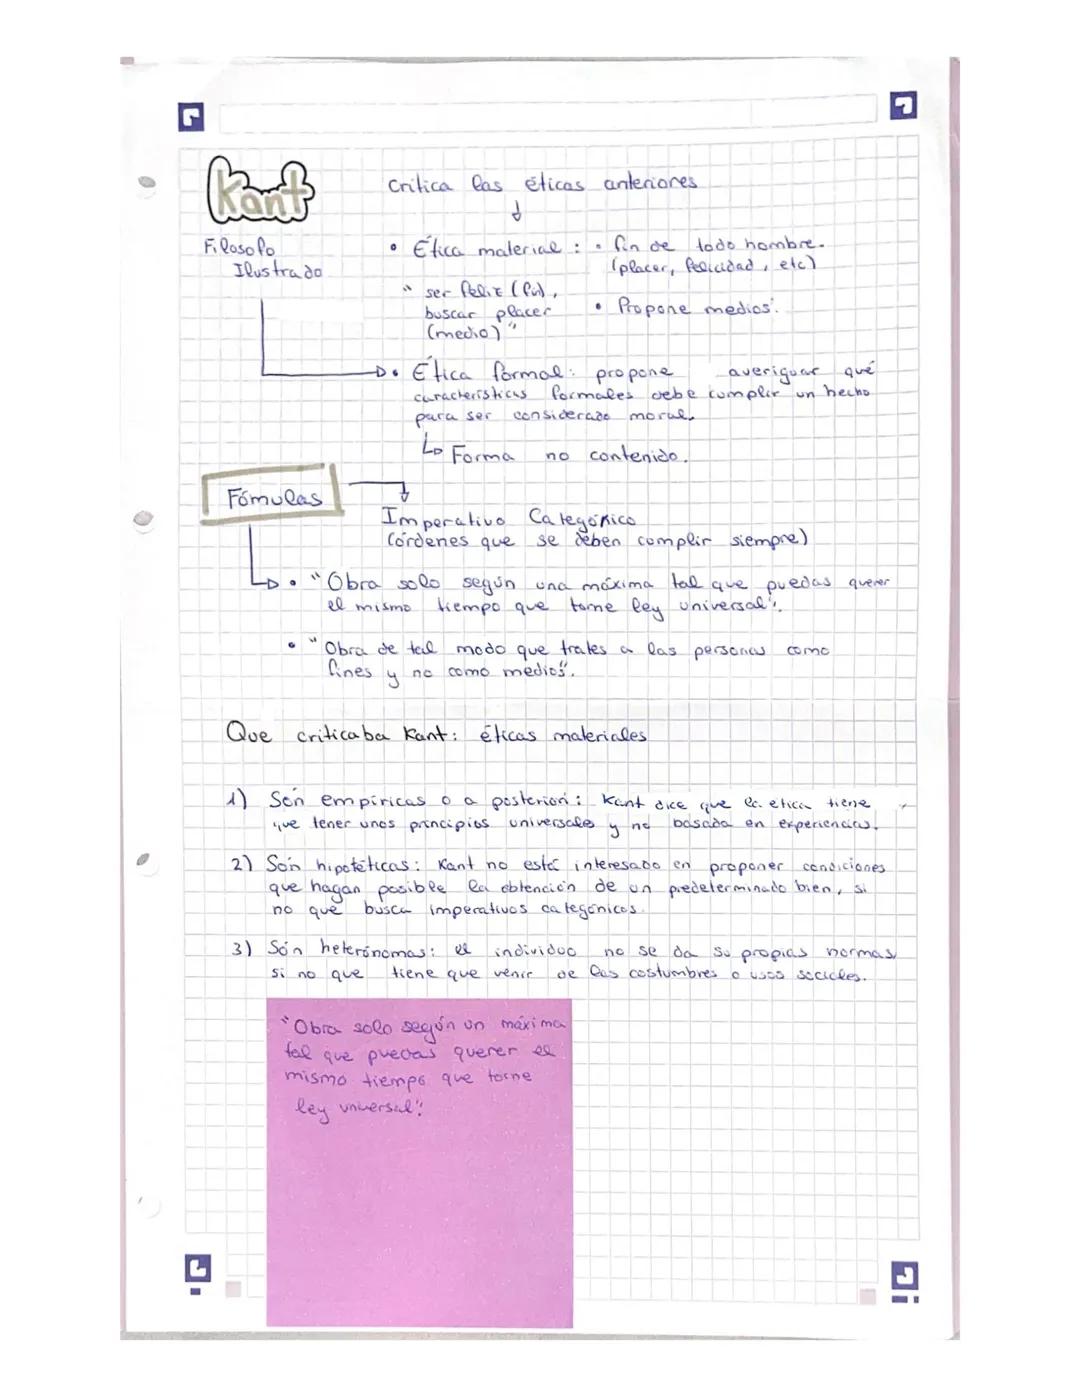 Kant
Crítica las éticas anteriores
Filosofo
Ilustrado
• Ética material : • fin de todo hombre.
(placer, felicidad, etc)
"ser feliz (fin),
buscar placer
(medio)"
• Propone medios.
• Ética formal: propone averiguar qué
características formales debe cumplir un hecho
para ser considerado moral.
Forma no contenido.
Fómulas
Imperativo Categórico
(órdenes que se deben cumplir siempre)
• "Obra solo según una máxima tal que puedas querer
el mismo tiempo que torne ley universal".
• "Obra de tal modo que trates a las personas como
fines y no como medios".
Que criticaba Kant: éticas materiales
1) Són empíricas o a posteriori: Kant dice que la etica tiene
que tener unos principios universales y no basada en experiencias.
2) Són hipotéticas: Kant no está interesado en proponer condiciones
que hagan posible la obtención de un predeterminado bien, si
no que busca imperativos categónicos.
3) Són heterónomas: el individuo no se da su propias normas
si no que tiene que venir de las costumbres o usos sociales.
"Obra solo según un máxima
tal que puedas querer el
mismo tiempo que torne
ley universal".